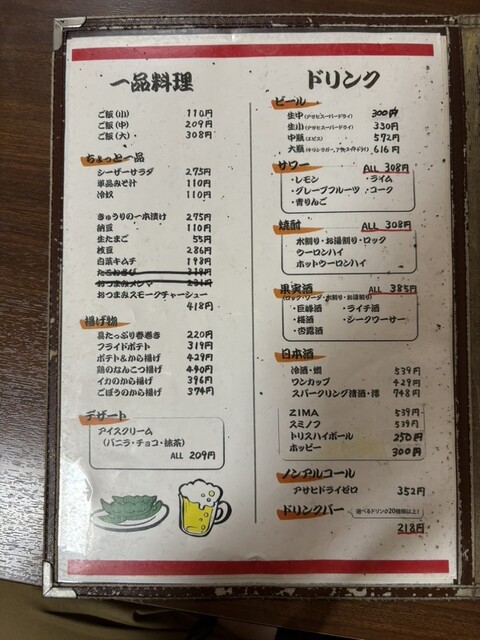 一品料理
ご飯(小) 110円
ご飯(中) 209円
ご飯(大) 308円
ちょっと一品
シーザーサラダ 275円
単品みそ汁 110円
冷奴 110円
きゅうりの一本漬け 275円
納豆 110円
生たまご 55円
枝豆 286円
白菜キムチ 198円
たこわさび 319円
おつまみメンマ 231円
おつまみスモークチャーシュー
418円
揚げ物
具たっぷり春巻き 220円
フライドポテト 319円
ポテト&から揚げ 429円
鶏のなんこつ揚げ 490円
イカのから揚げ 396円
ごぼうのから揚げ 374円
デザート
アイスクリーム
(バニラ・チョコ・抹茶)
ALL 209円
ドリンク
ビール
生中(アサヒスーパードライ) 300円
生小(アサヒスーパードライ) 330円
中瓶(エビス) 572円
大瓶(キリンラガー、アサヒスーパードライ) 616円
サワー ALL 308円
・レモン ・ライム
・グレープフルーツ ・コーク
・青りんご
焼酎 ALL 308円
水割り・お湯割り・ロック
ウーロンハイ
ホットウーロンハイ
果実酒 ALL 385円
(ロック・ソーダ・水割り・お湯割り)
・巨峰酒 ・ライチ酒
・梅酒 ・シークワーサー
・杏露酒
日本酒
冷酒・燗 539円
ワンカップ 429円
スパークリング清酒・澪 748円
ZIMA 539円
スミノフ 539円
トリスハイボール 250円
ホッピー 300円
ノンアルコール
アサヒドライゼロ 352円
ドリンクバー 選べるドリンク20種類以上!
218円